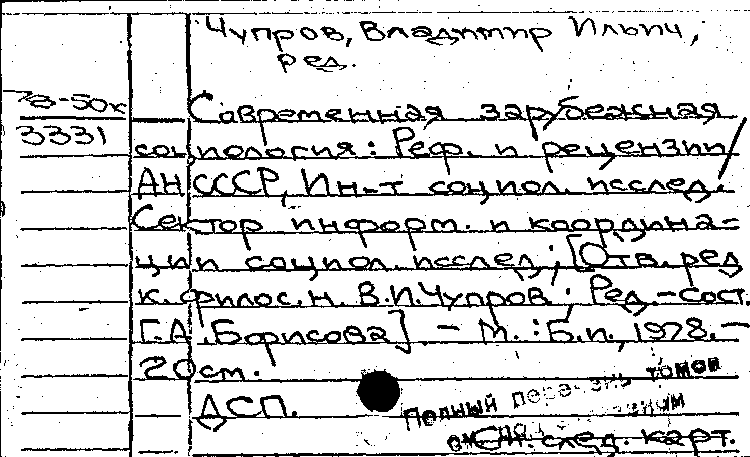 Чупров, Владимир Ильич,
ред.
78-50к
3331
Современная зарубежная
социология: Реф. и рецензии/
АН СССР, Ин-т социол. исслед.
Сектор информ. и координа-
ции социол. исслед.; [Отв. ред.
к. филос. н. В.И. Чупров; Ред.-сост.
Г.А. Борисова]. - М.: Б.и., 1978. -
20 см.
ДСП.
Полный томов
См. след. карт.